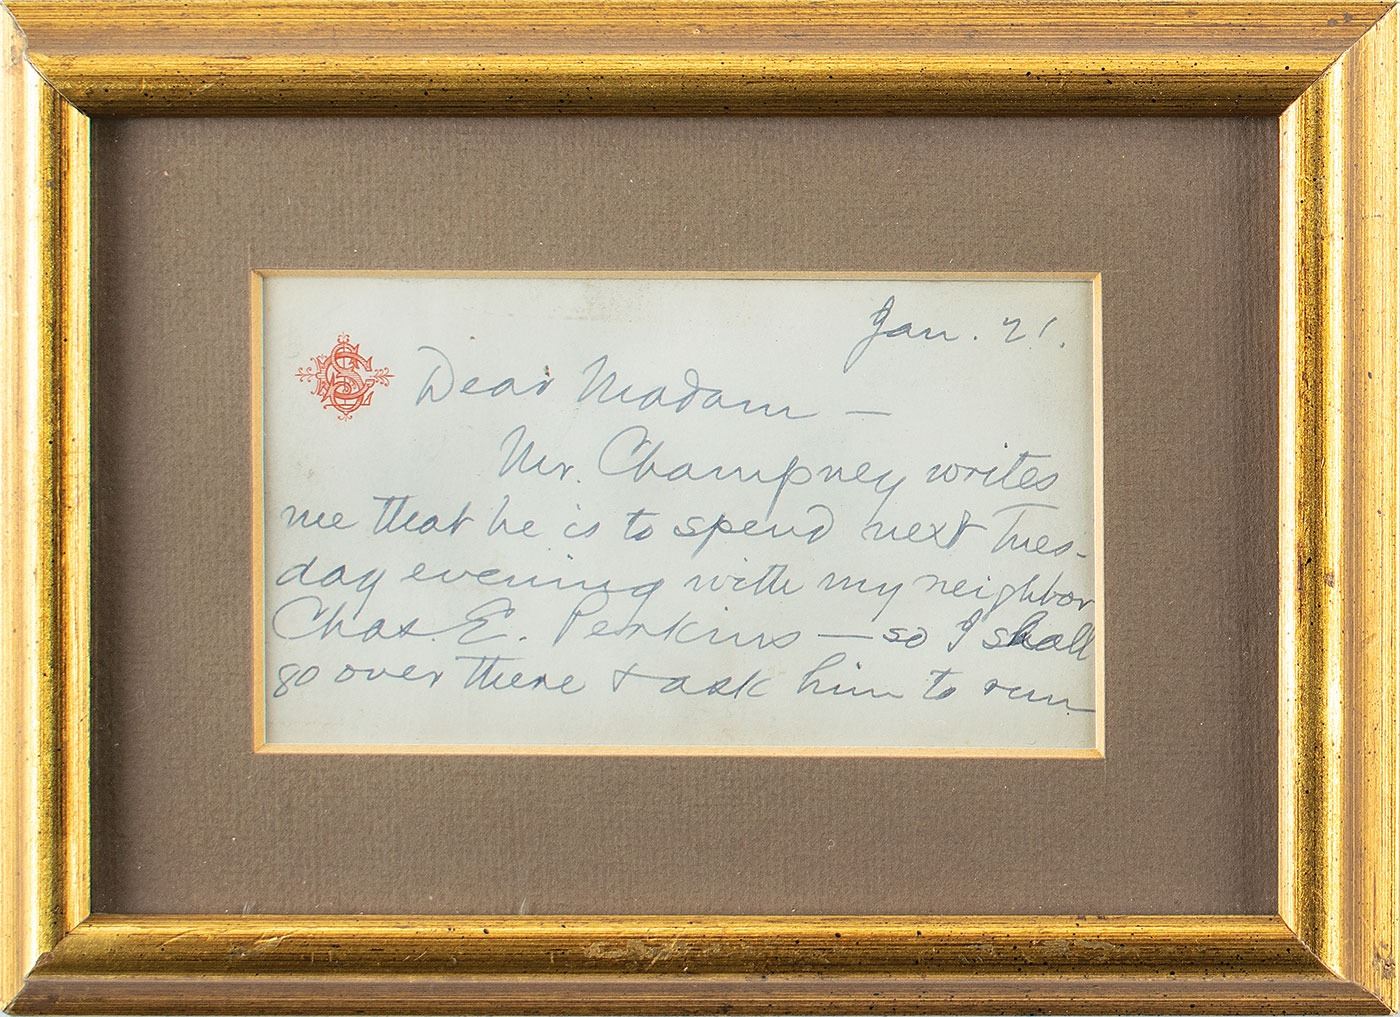 Jan. 21.
Dear Madam —
Mr. Champney writes
me that he is to spend next Tues-
day evening with my neighbor
Chas E. Perkins — so I shall
go over there & ask him to run